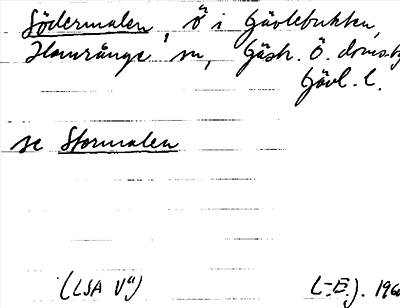 Södermalen, ö i Gävlebukten,
Hamrånge sn, Gästr. Ö. domsb
Gävl. l.
se Stormalen
(LSA V11) (-E). 196